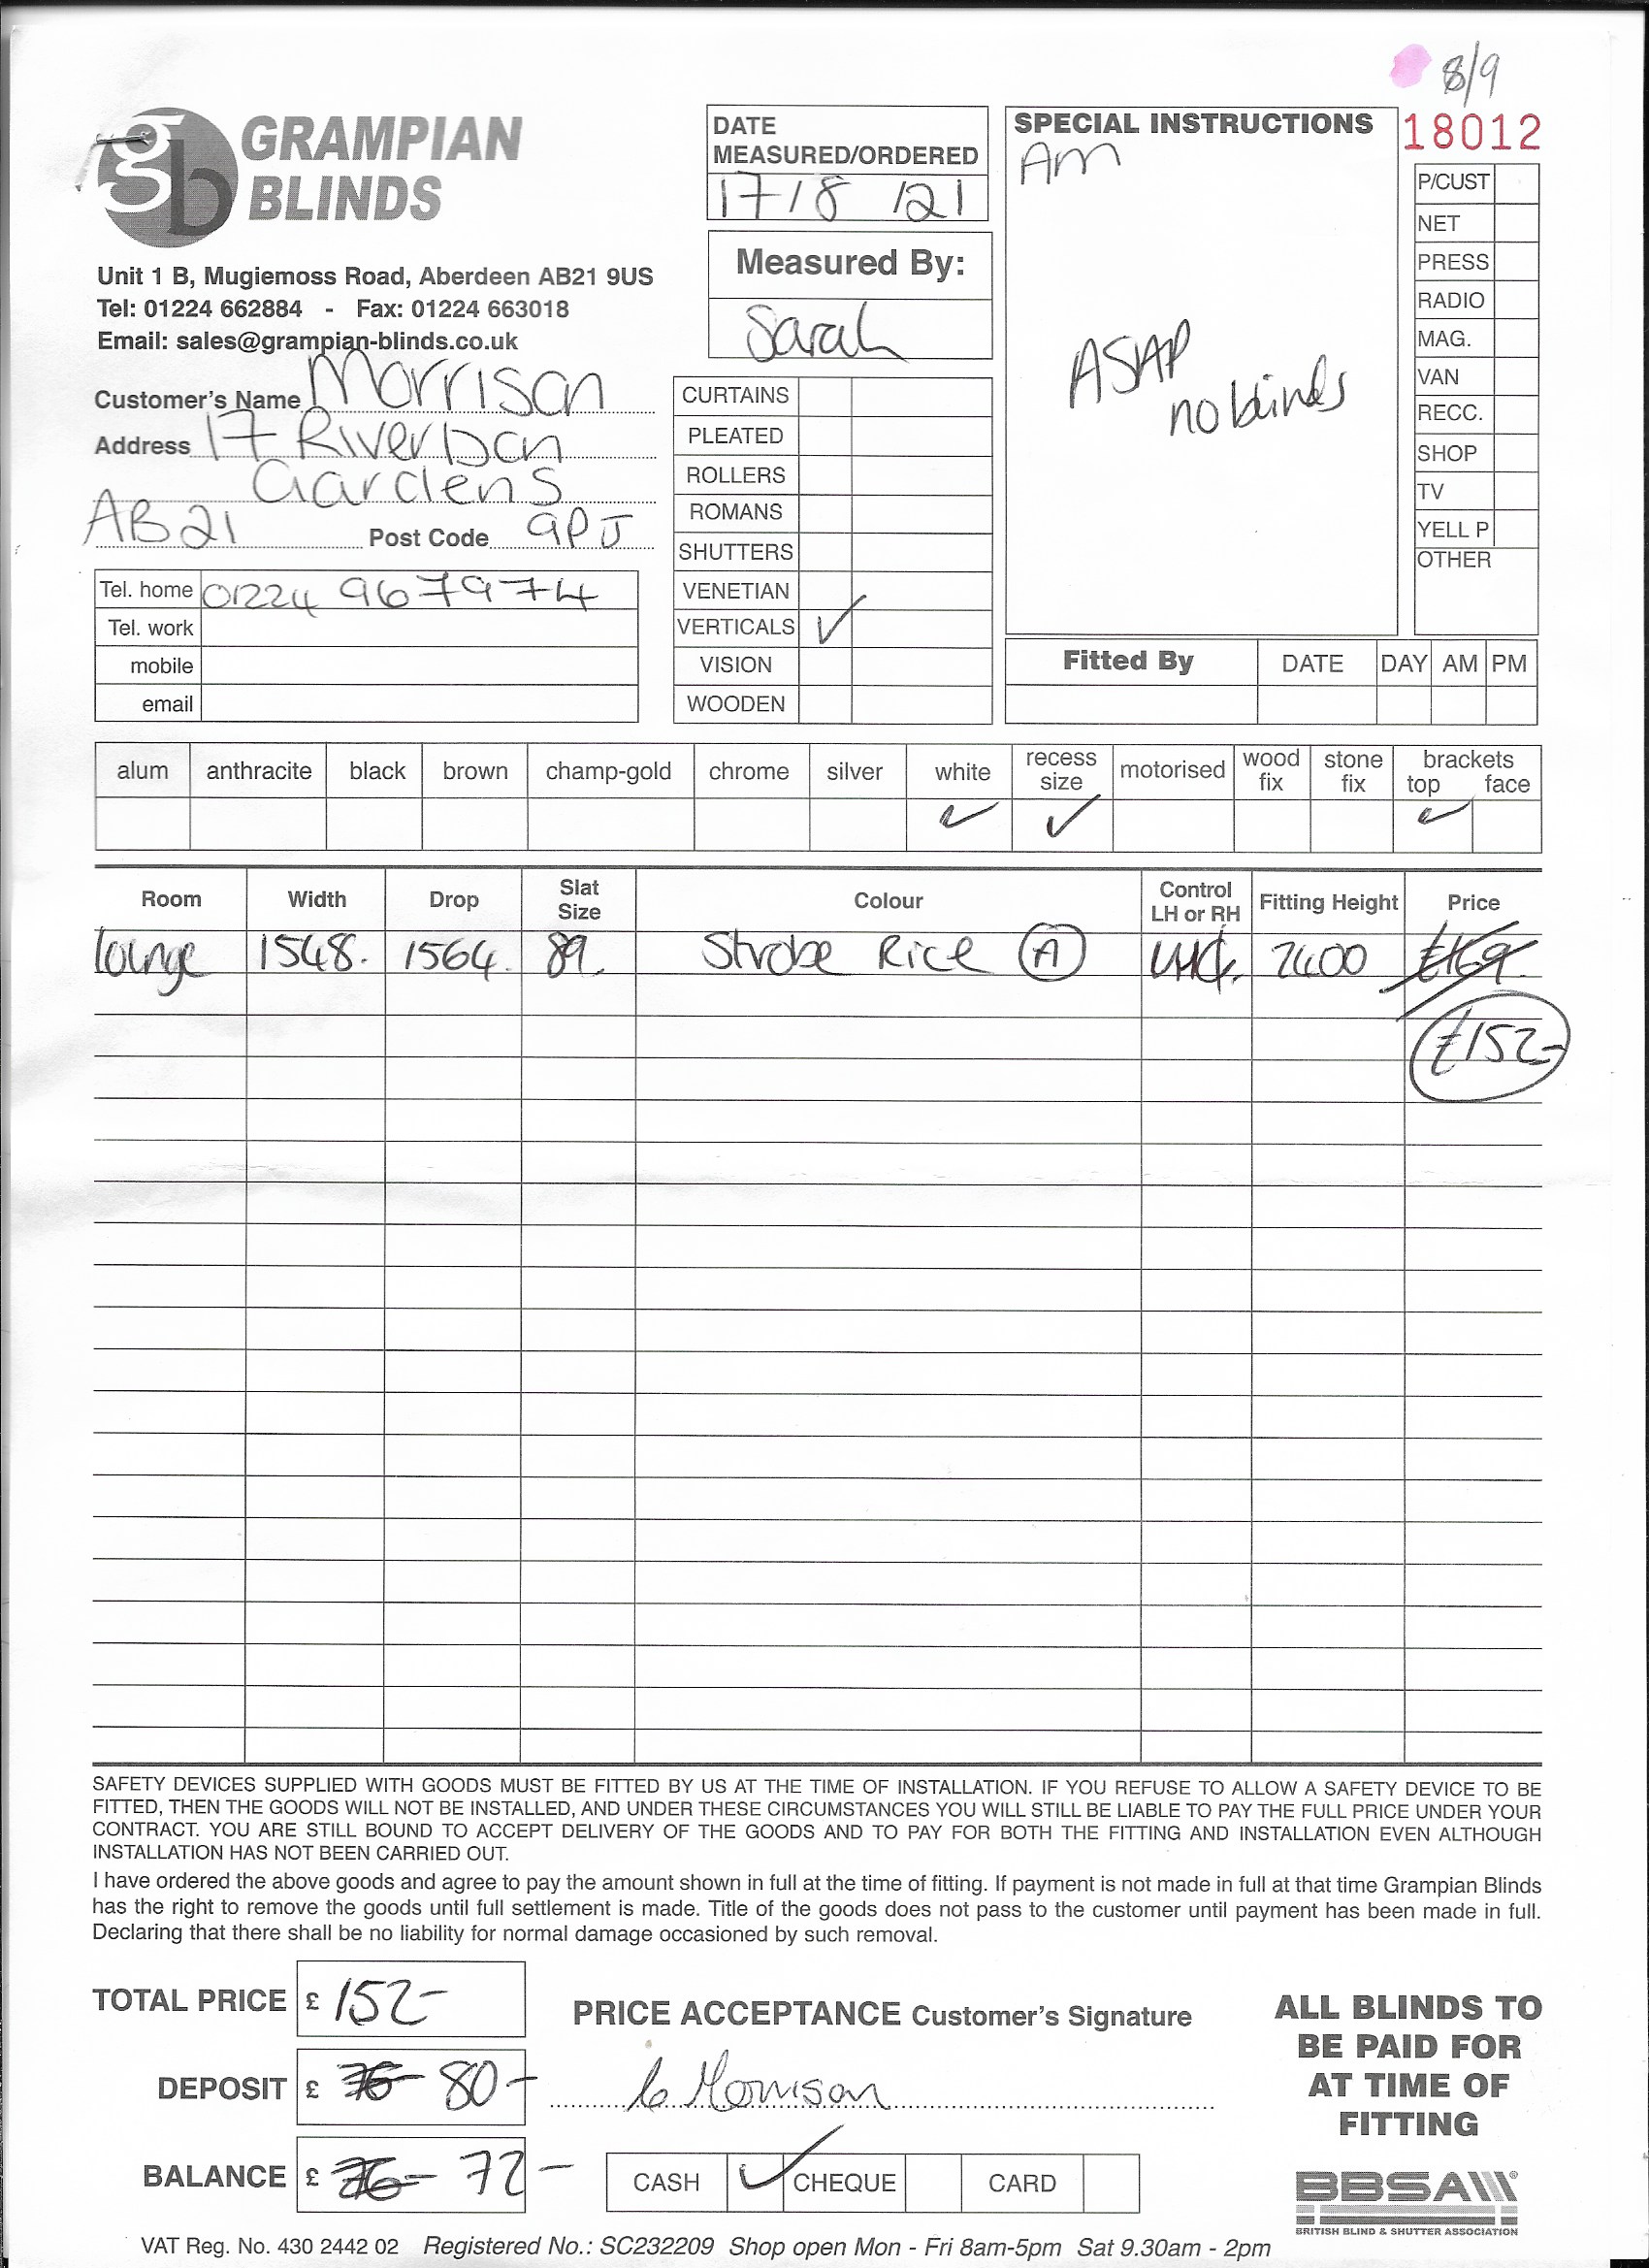 8/9
GRAMPIAN
BLINDS
gb
Unit 1 B, Mugiemoss Road, Aberdeen AB21 9US
Tel: 01224 662884 - Fax: 01224 663018
Email: sales@grampian-blinds.co.uk
Customer's Name Morrison
Address 17 Riverdon
Gardens
AB21 Post Code 9PJ
Tel. home 01224 967974
Tel. work
mobile
email
DATE
MEASURED/ORDERED
17/8/21
Measured By:
Sarah
CURTAINS
PLEATED
ROLLERS
ROMANS
SHUTTERS
VENETIAN
VERTICALS ✓
VISION
WOODEN
SPECIAL INSTRUCTIONS
Am
ASAP
no blinds
18012
P/CUST
NET
PRESS
RADIO
MAG.
VAN
RECC.
SHOP
TV
YELL P
OTHER
Fitted By DATE DAY AM PM
alum anthracite black brown champ-gold chrome silver white recess size motorised wood fix stone fix brackets top face
✓ ✓ ✓
Room Width Drop Slat Size Colour Control LH or RH Fitting Height Price
lounge 1548. 1564. 89. Strobe Rice (A) 2400 £169
£152-
SAFETY DEVICES SUPPLIED WITH GOODS MUST BE FITTED BY US AT THE TIME OF INSTALLATION. IF YOU REFUSE TO ALLOW A SAFETY DEVICE TO BE
FITTED, THEN THE GOODS WILL NOT BE INSTALLED, AND UNDER THESE CIRCUMSTANCES YOU WILL STILL BE LIABLE TO PAY THE FULL PRICE UNDER YOUR
CONTRACT. YOU ARE STILL BOUND TO ACCEPT DELIVERY OF THE GOODS AND TO PAY FOR BOTH THE FITTING AND INSTALLATION EVEN ALTHOUGH
INSTALLATION HAS NOT BEEN CARRIED OUT.
I have ordered the above goods and agree to pay the amount shown in full at the time of fitting. If payment is not made in full at that time Grampian Blinds
has the right to remove the goods until full settlement is made. Title of the goods does not pass to the customer until payment has been made in full.
Declaring that there shall be no liability for normal damage occasioned by such removal.
TOTAL PRICE £ 152-
DEPOSIT £ 76- 80-
BALANCE £ 76- 72-
PRICE ACCEPTANCE Customer's Signature
Morrison
CASH ✓ CHEQUE CARD
ALL BLINDS TO
BE PAID FOR
AT TIME OF
FITTING
BBSA
BRITISH BLIND & SHUTTER ASSOCIATION
VAT Reg. No. 430 2442 02 Registered No.: SC232209 Shop open Mon - Fri 8am-5pm Sat 9.30am - 2pm